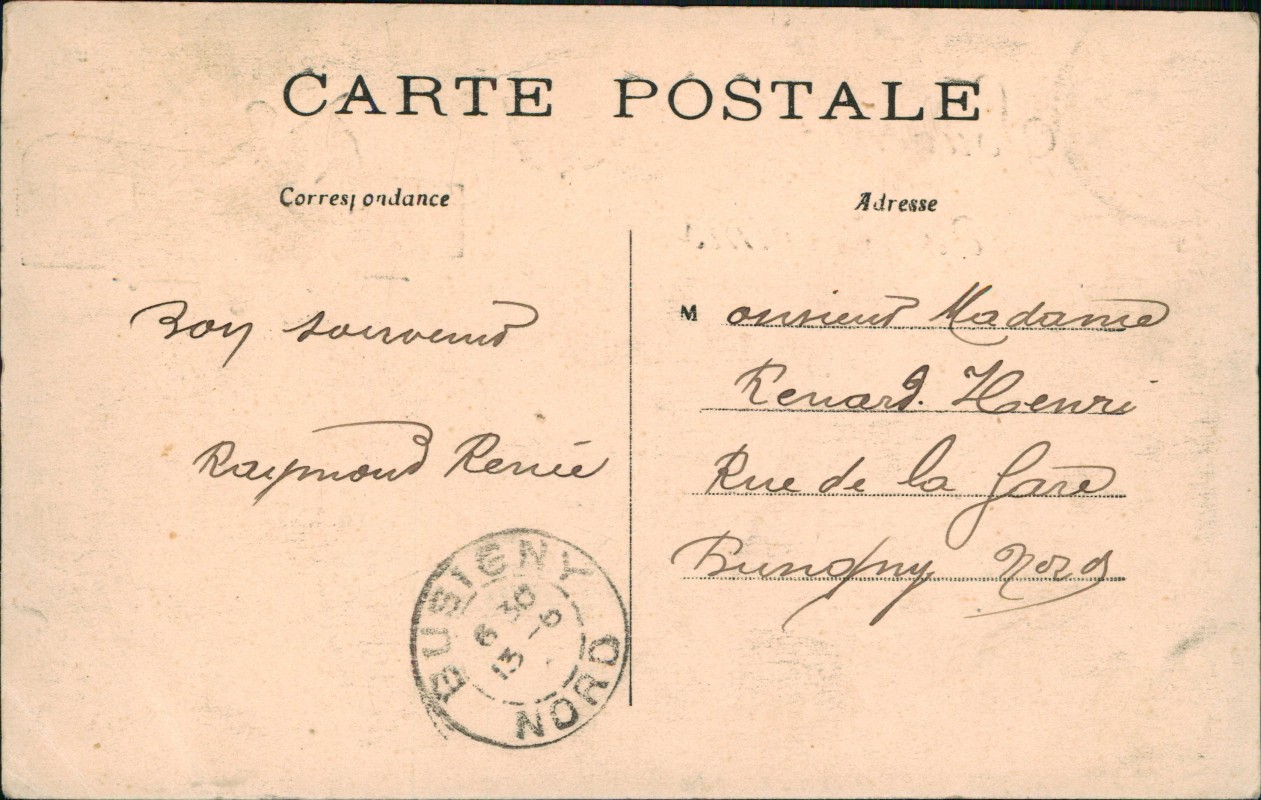 CARTE POSTALE
Correspondance
Adresse
Bon souvenir
Raymond Renée
Monsieur Madame
Renard. Henri
Rue de la Gare
Busigny Nord
BUSIGNY
6 30
13 - 9
NORD